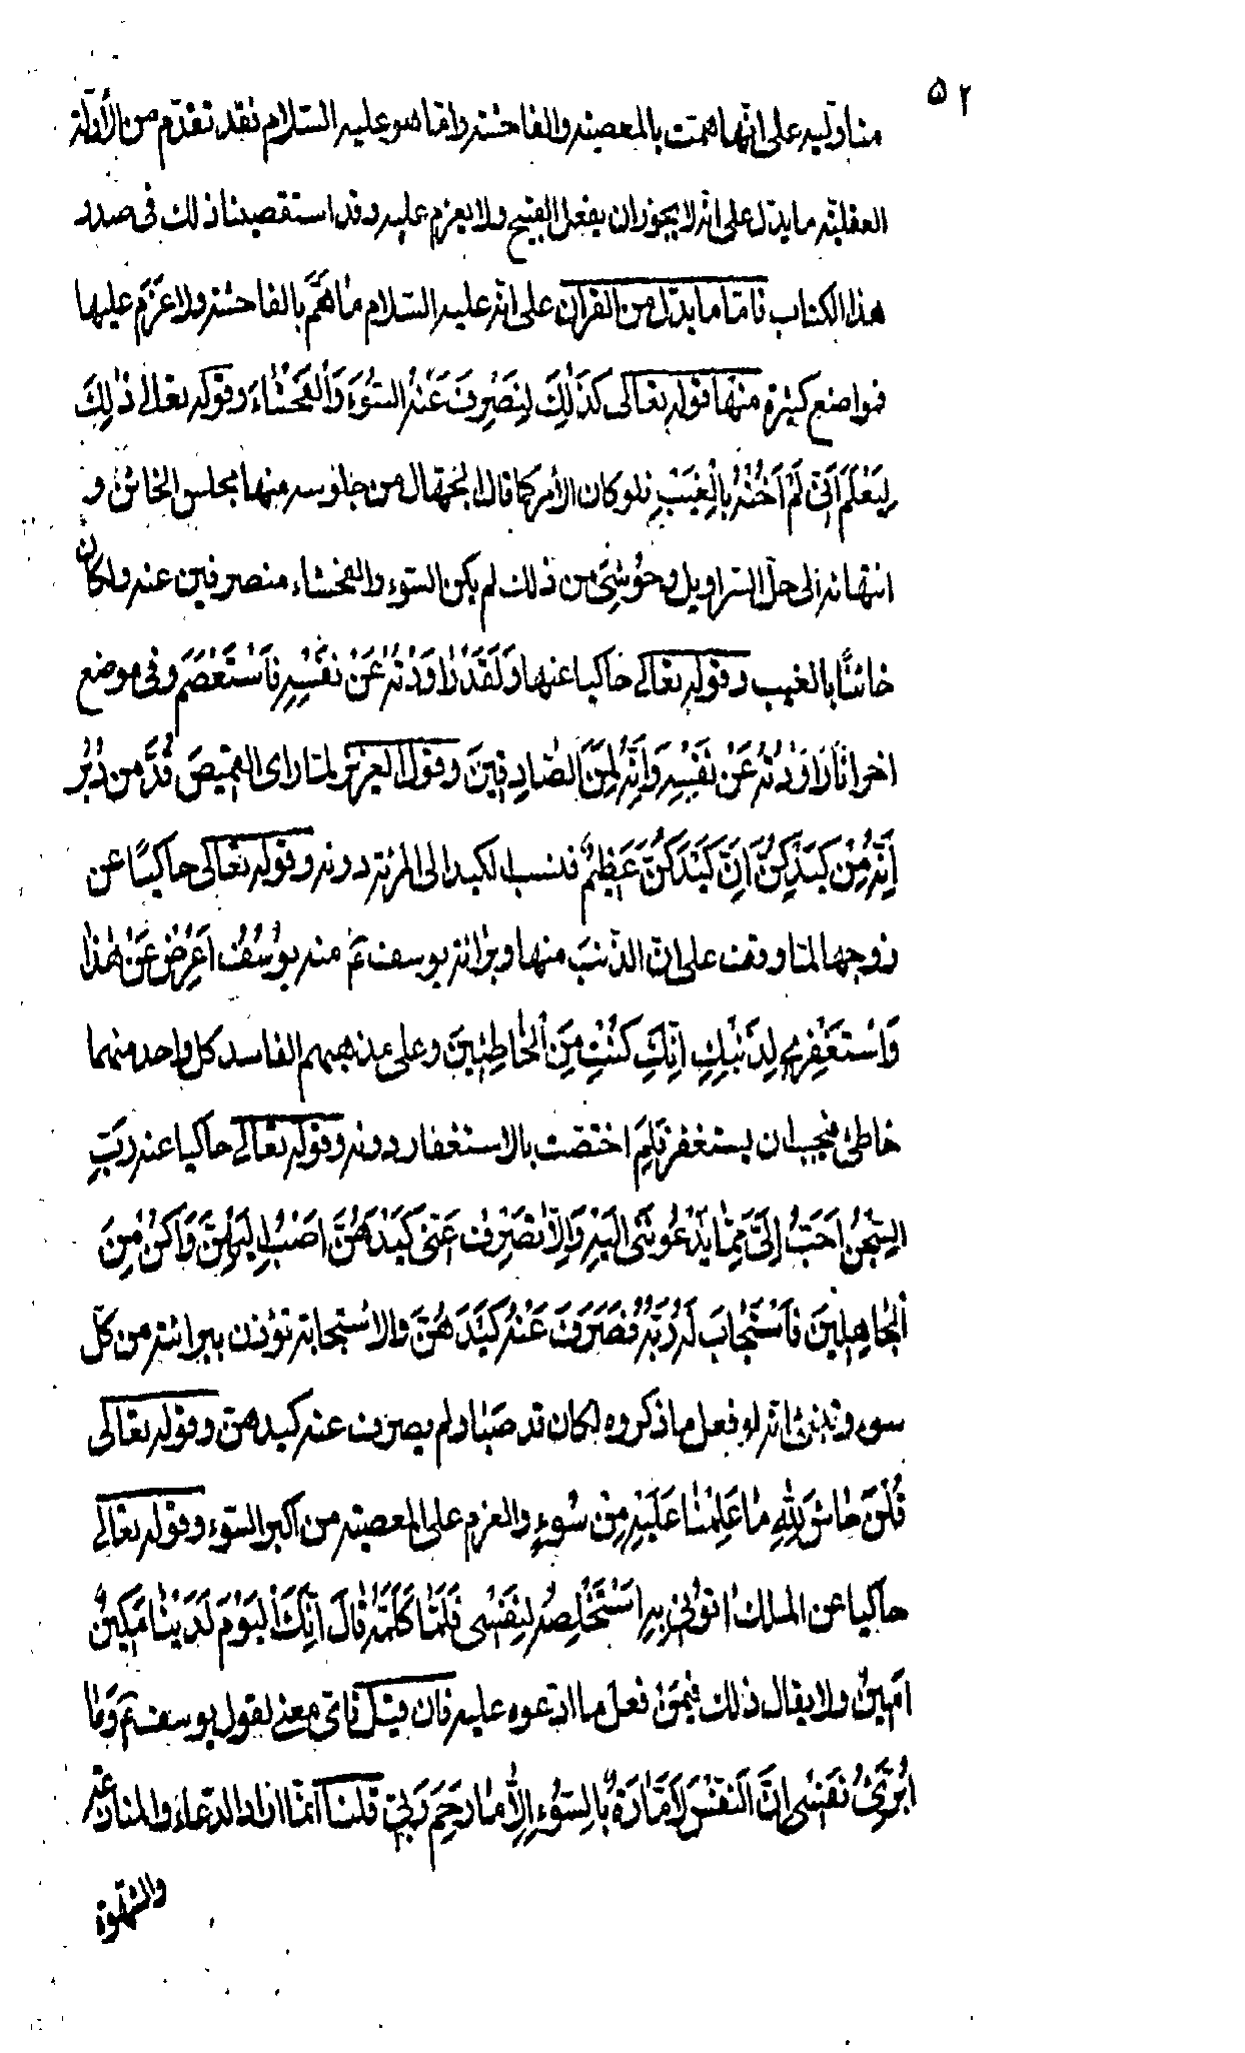 ٥٢
متأوليه على انّها همت بالمعصية والفاحشة وامّا هو عليه السّلام فقد تقدّم من الأدلّة
العقليّة ما يدّل على انّه لا يجوز ان يفعل القبيح ولا يعزم عليه وقد استقصينا ذلك فى صدر
هذا الكتاب فامّا ما يدّل من القران على انّه عليه السّلام مٰا هَمَّ بالفاحشة ولا عَزَمَ عليها
فمواضع كثيرة منها قوله تعالى كَذٰلِكَ لِنَصْرِفَ عَنْهُ السُّوٓءَ وَالْفَحْشٰٓاءَ وقوله تعالى ذٰلِكَ
لِيَعْلَمَ اَنّى لَمْ اَخُنْهُ بِالْغَيْبِ فلو كان الأمر كما قال الجهّال من جلوسه منها مجلس الخائن و
انتهائه الى حلّ السّراويل وحُوشِىَ من ذلك لم يكن السّوء والفحشاء منصرفين عنه ولكان
خائنًا بالغيب وقوله تعالى حاكيا عنها وَلَقَدْ رٰاوَدْتُهُ عَنْ نَفْسِهِ فَاسْتَعْصَمَ وفى موضع
اخر انَا رٰاوَدْتُهُ عَنْ نَفْسِهِ وَاِنَّهُ لَمِنَ الصّٰادِقِينَ وقول العزيز لمّا راى القميصَ قُدَّ من دُبُرٍ
اِنَّهُ مِنْ كَيْدِكُنَّ اِنَّ كَيْدَكُنَّ عَظِيمٌ فنسب الكيد الى المرئة دونه وقوله تعالى حاكيًا عن
زوجها لمّا وقف على انّ الذّنبَ منها وبرائة يوسف عم منه يُوسُفُ اَعْرِضْ عَنْ هٰذٰا
وَاسْتَغْفِرِي لِذَنْبِكِ اِنَّكِ كُنْتِ مِنَ الْخٰاطِئِينَ وعلى مذهبهم الفاسد كل واحد منهما
خاطئ فيجب ان يستغفر فَلِمَ اختصّت بالاستغفار دونه وقوله تعالى حاكيا عنه رَبِّ
السِّجْنُ اَحَبُّ اِلَىَّ مِمّٰا يَدْعُونَنى اِلَيْهِ وَاِلّٰا تَصْرِفْ عَنّى كَيْدَهُنَّ اَصْبُ اِلَيْهِنَّ وَاَكُنْ مِنَ
الْجٰاهِلِينَ فَاسْتَجٰابَ لَهُ رَبُّهُ فَصَرَفَ عَنْهُ كَيْدَهُنَّ والاستجابة تؤذن ببرائته من كلّ
سوء وتنبئ انّه لو فعل ما ذكروه لكان قد صَبٰا ولم يصرف عنه كيدهنّ وقوله تعالى
قُلْنَ حٰاشَ لِلّٰهِ مٰا عَلِمْنٰا عَلَيْهِ مِنْ سُوءٍ والعزم على المعصية من اكبر السّوء وقوله تعالى
حاكيا عن الملك ائْتُونِى بِهِ اَسْتَخْلِصْهُ لِنَفْسِى فَلَمّٰا كَلَّمَهُ قٰالَ اِنَّكَ الْيَوْمَ لَدَيْنٰا مَكِينٌ
اَمِينٌ ولا يقال ذلك فيمَنْ فعل ما ادّعوه عليه فان قيل فاىّ معنى لقول يوسف عم وَمٰا
اُبَرِّئُ نَفْسِى اِنَّ النَّفْسَ لَاَمّٰارَةٌ بِالسُّوءِ اِلّٰا مٰا رَحِمَ رَبِّى قلنا انّما اراد الدّعاء والمنازعة
والشّهوة